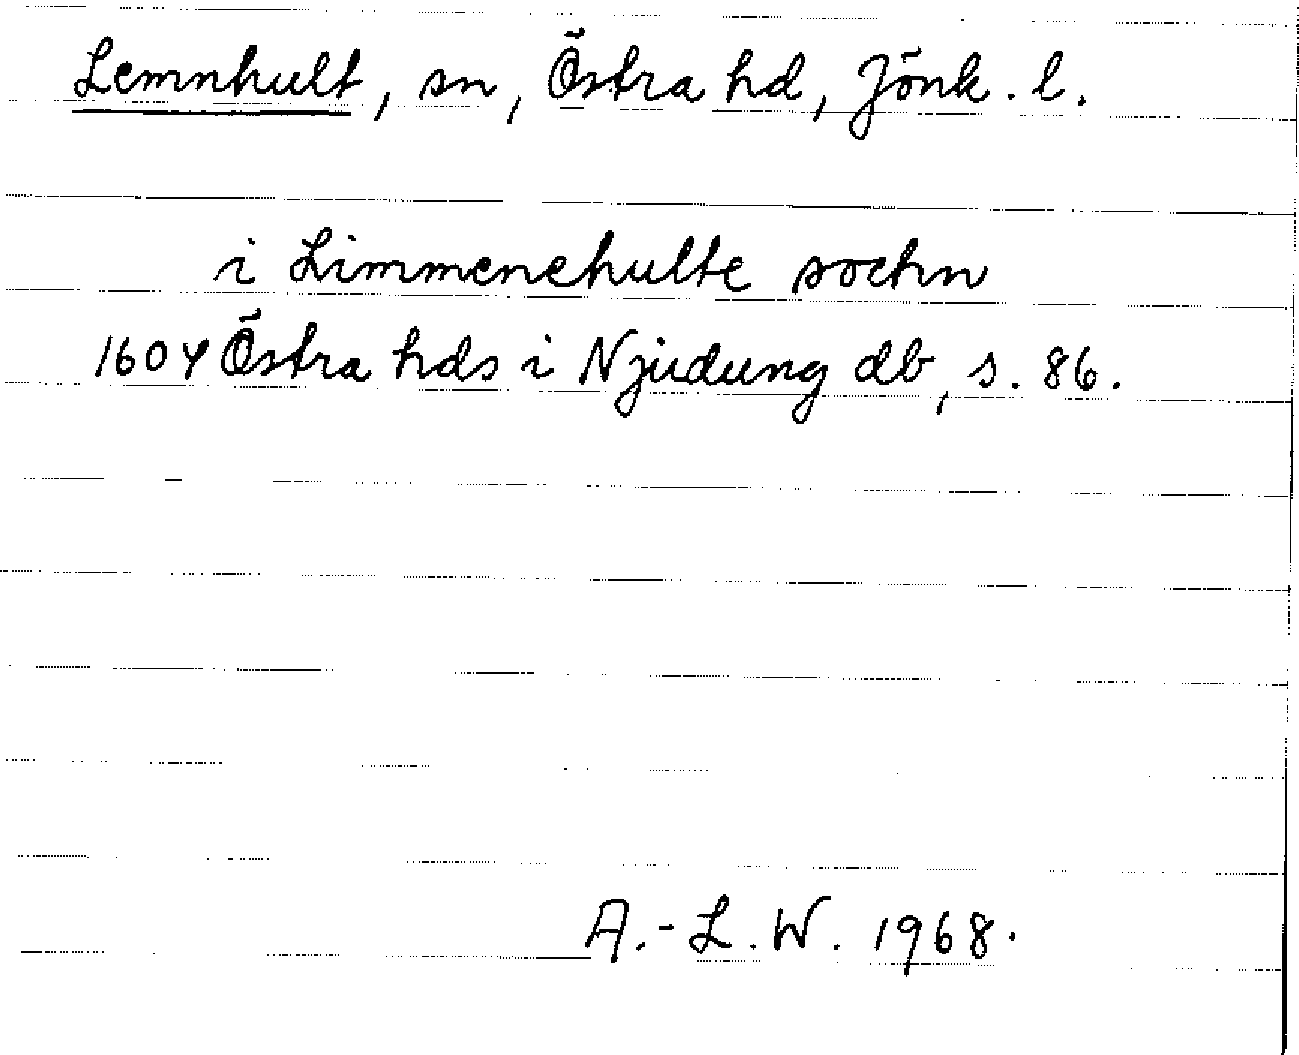 Lemnhult, sn, Östra hd, Jönk. l.
i Limmenehulte sochn
1604 Östra hds i Njudung db, s. 86.
A.-L. W. 1968.